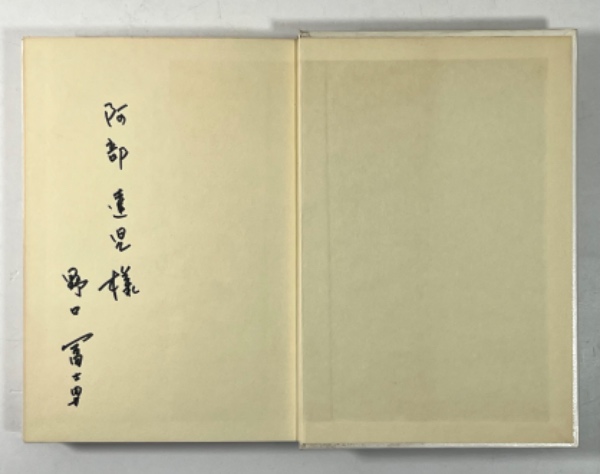 阿部達児様
野口冨士男